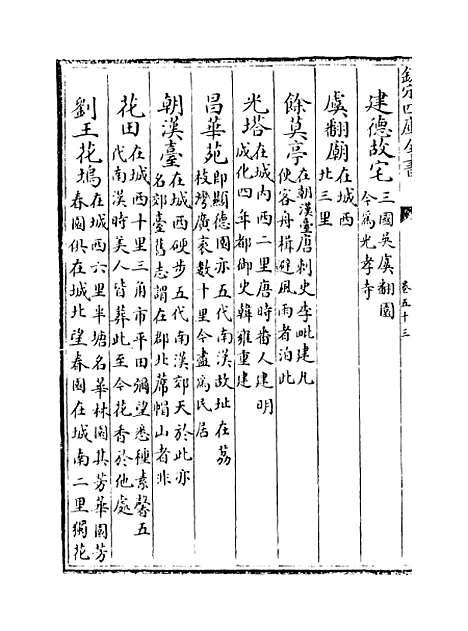 欽定四庫全書
卷五十三
建德故宅三國吳虞翻園
今為光孝寺
虞翻廟在城西
北三里
餘莫亭在朝漢臺唐刺史李毗建凡
使客舟楫避風雨者泊此
光塔在城内西二里唐時番人建明
成化四年都御史韓雍重建
昌華苑即顯德園亦五代南漢故址在荔
枝灣廣袤數十里今盡為民居
朝漢臺在城西硬步五代南漢郊天於此亦
名郊臺舊志謂在郡北蓆帽山者非
花田在城西十里三角市平田彌望悉種素馨五
代南漢時美人皆葬此至今花香於他處
劉王花塢在城西六里半塘名華林園其芳華園芳
春園俱在城北望春園在城南二里獨花